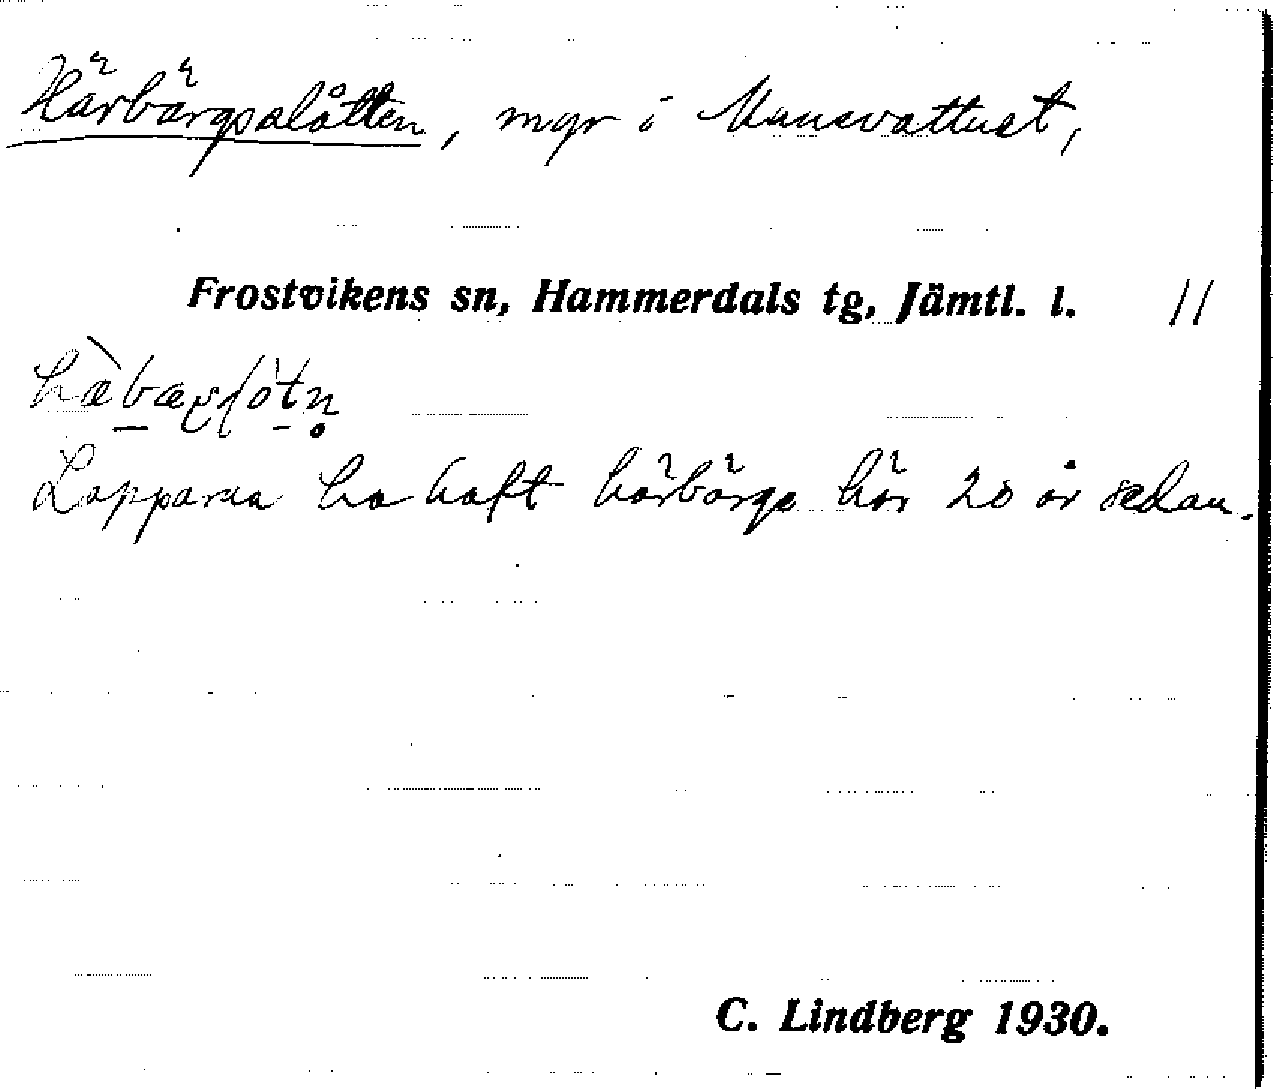 Härbärgsslåtten, myr i Mansvattnet,
Frostvikens sn, Hammerdals tg, Jämtl. l. 11
Lapparna ha haft härbärge här 20 år sedan.
C. Lindberg 1930.